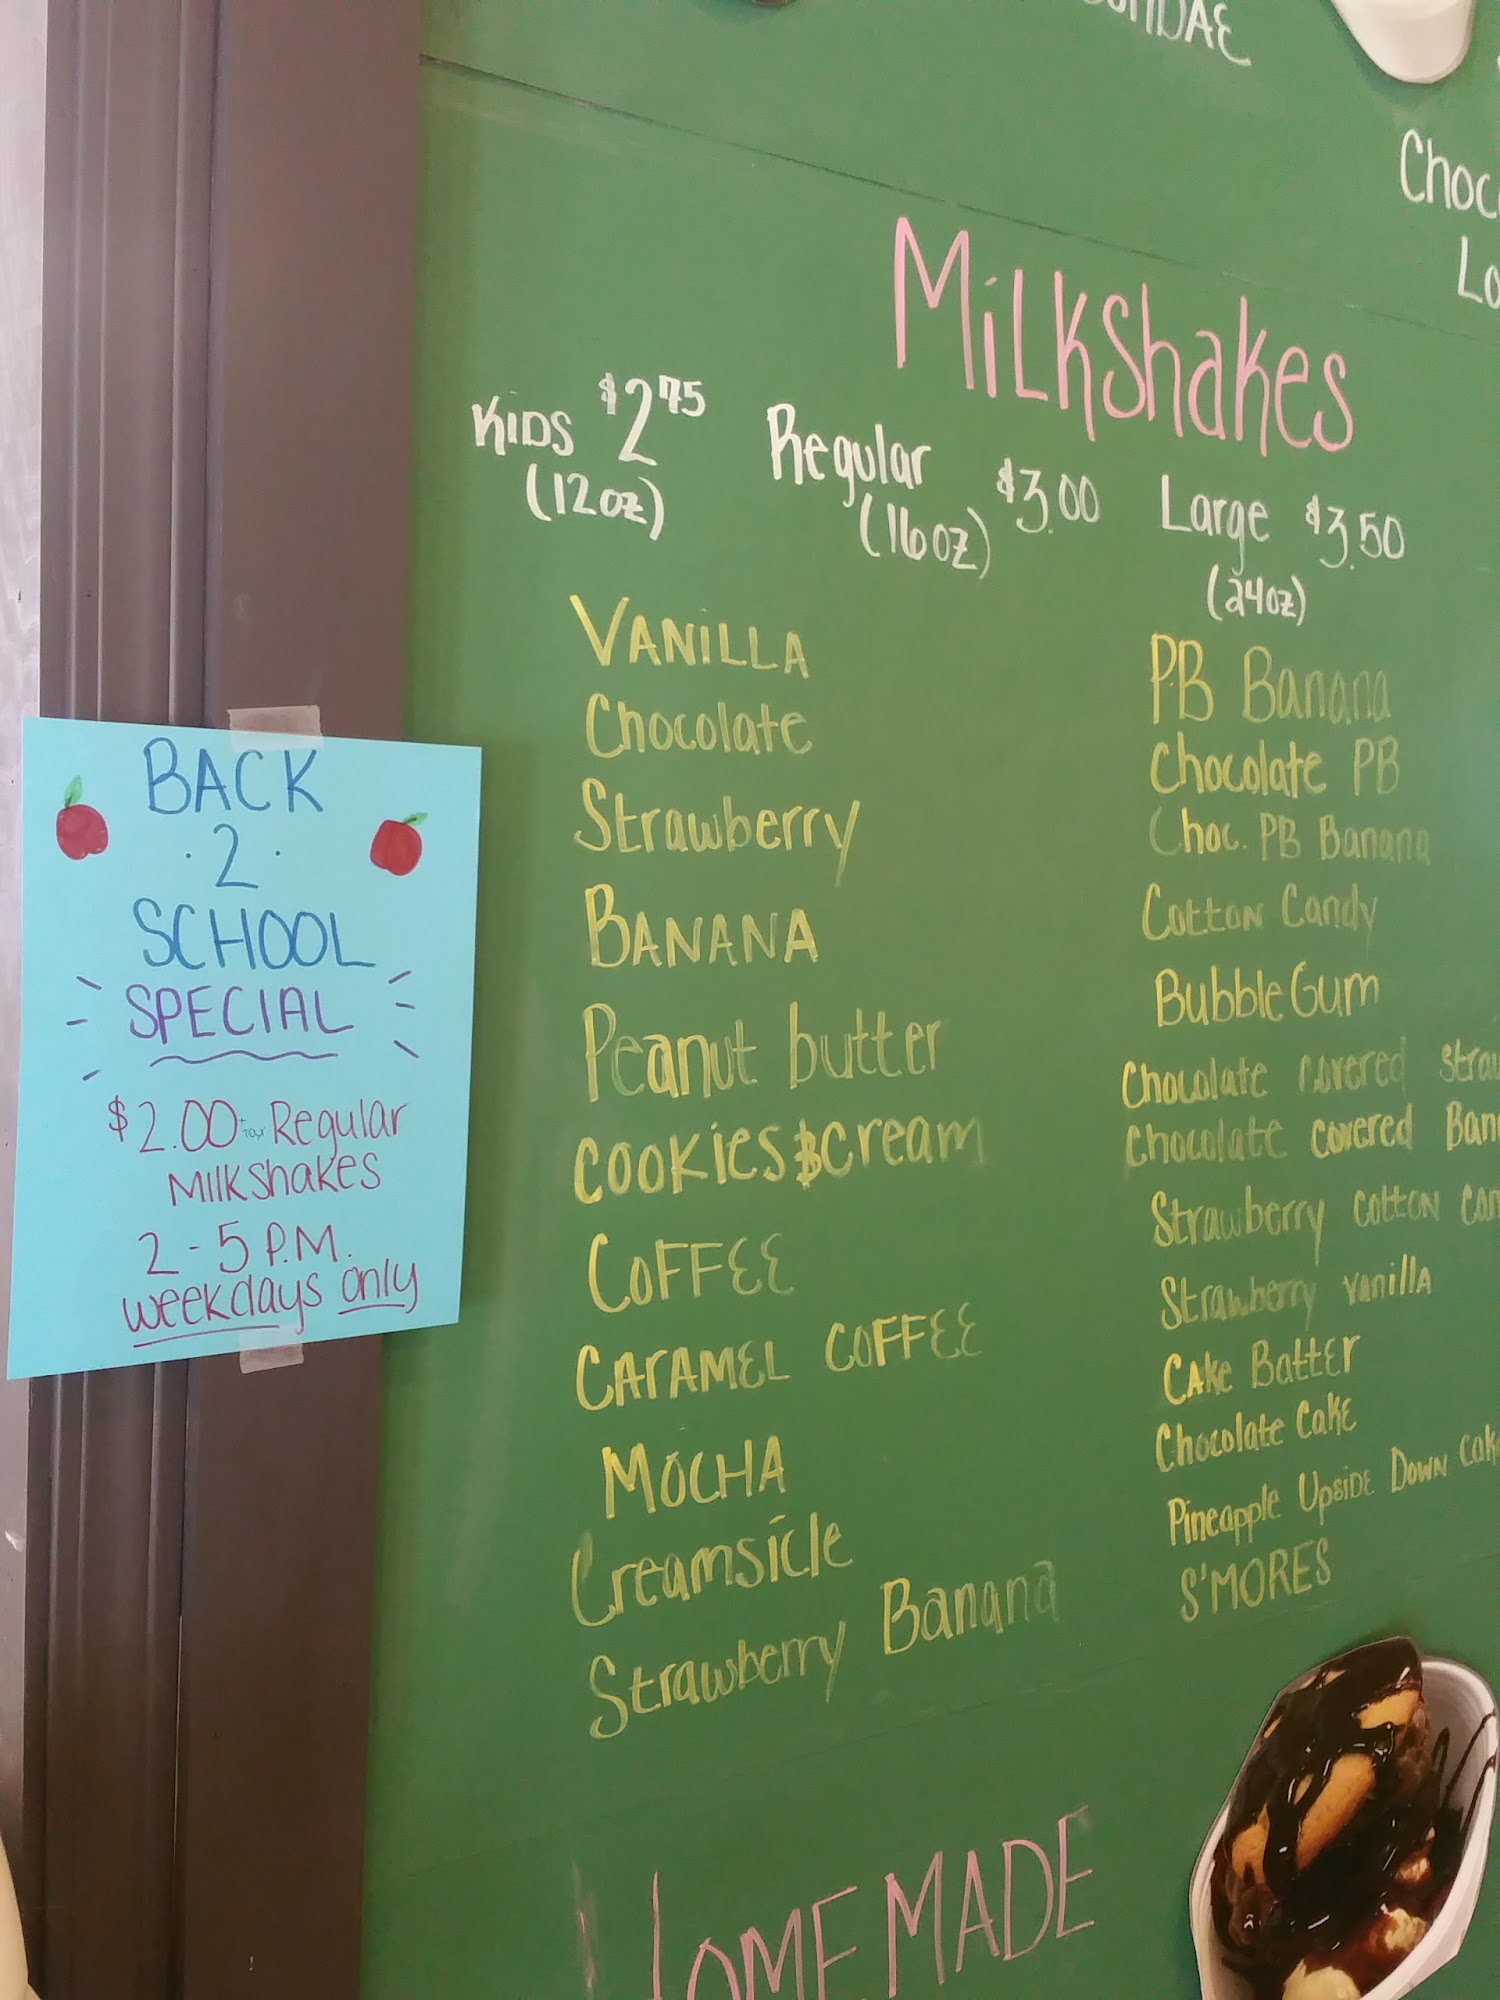 BACK
·2·
SCHOOL
SPECIAL
$2.00 + tax Regular
Milkshakes
2-5 P.M.
weekdays only
Milkshakes
KIDS $2.75
(12oz)
Regular $3.00
(16oz)
Large $3.50
(24oz)
VANILLA
Chocolate
Strawberry
BANANA
Peanut butter
cookies & cream
COFFEE
CARAMEL COFFEE
MOCHA
Creamsicle
Strawberry Banana
PB Banana
Chocolate PB
Choc. PB Banana
Cotton Candy
Bubble Gum
Chocolate covered
Chocolate covered
Strawberry cotton
Strawberry vanilla
CAKE BATTER
Chocolate Cake
Pineapple Upside Down Cake
S'MORES
HOMEMADE